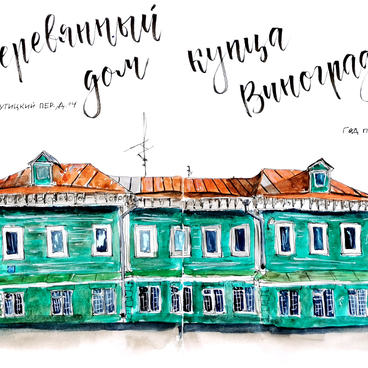 деревянный
дом
купца
Виноград
утицкий пер., д. 14
год п